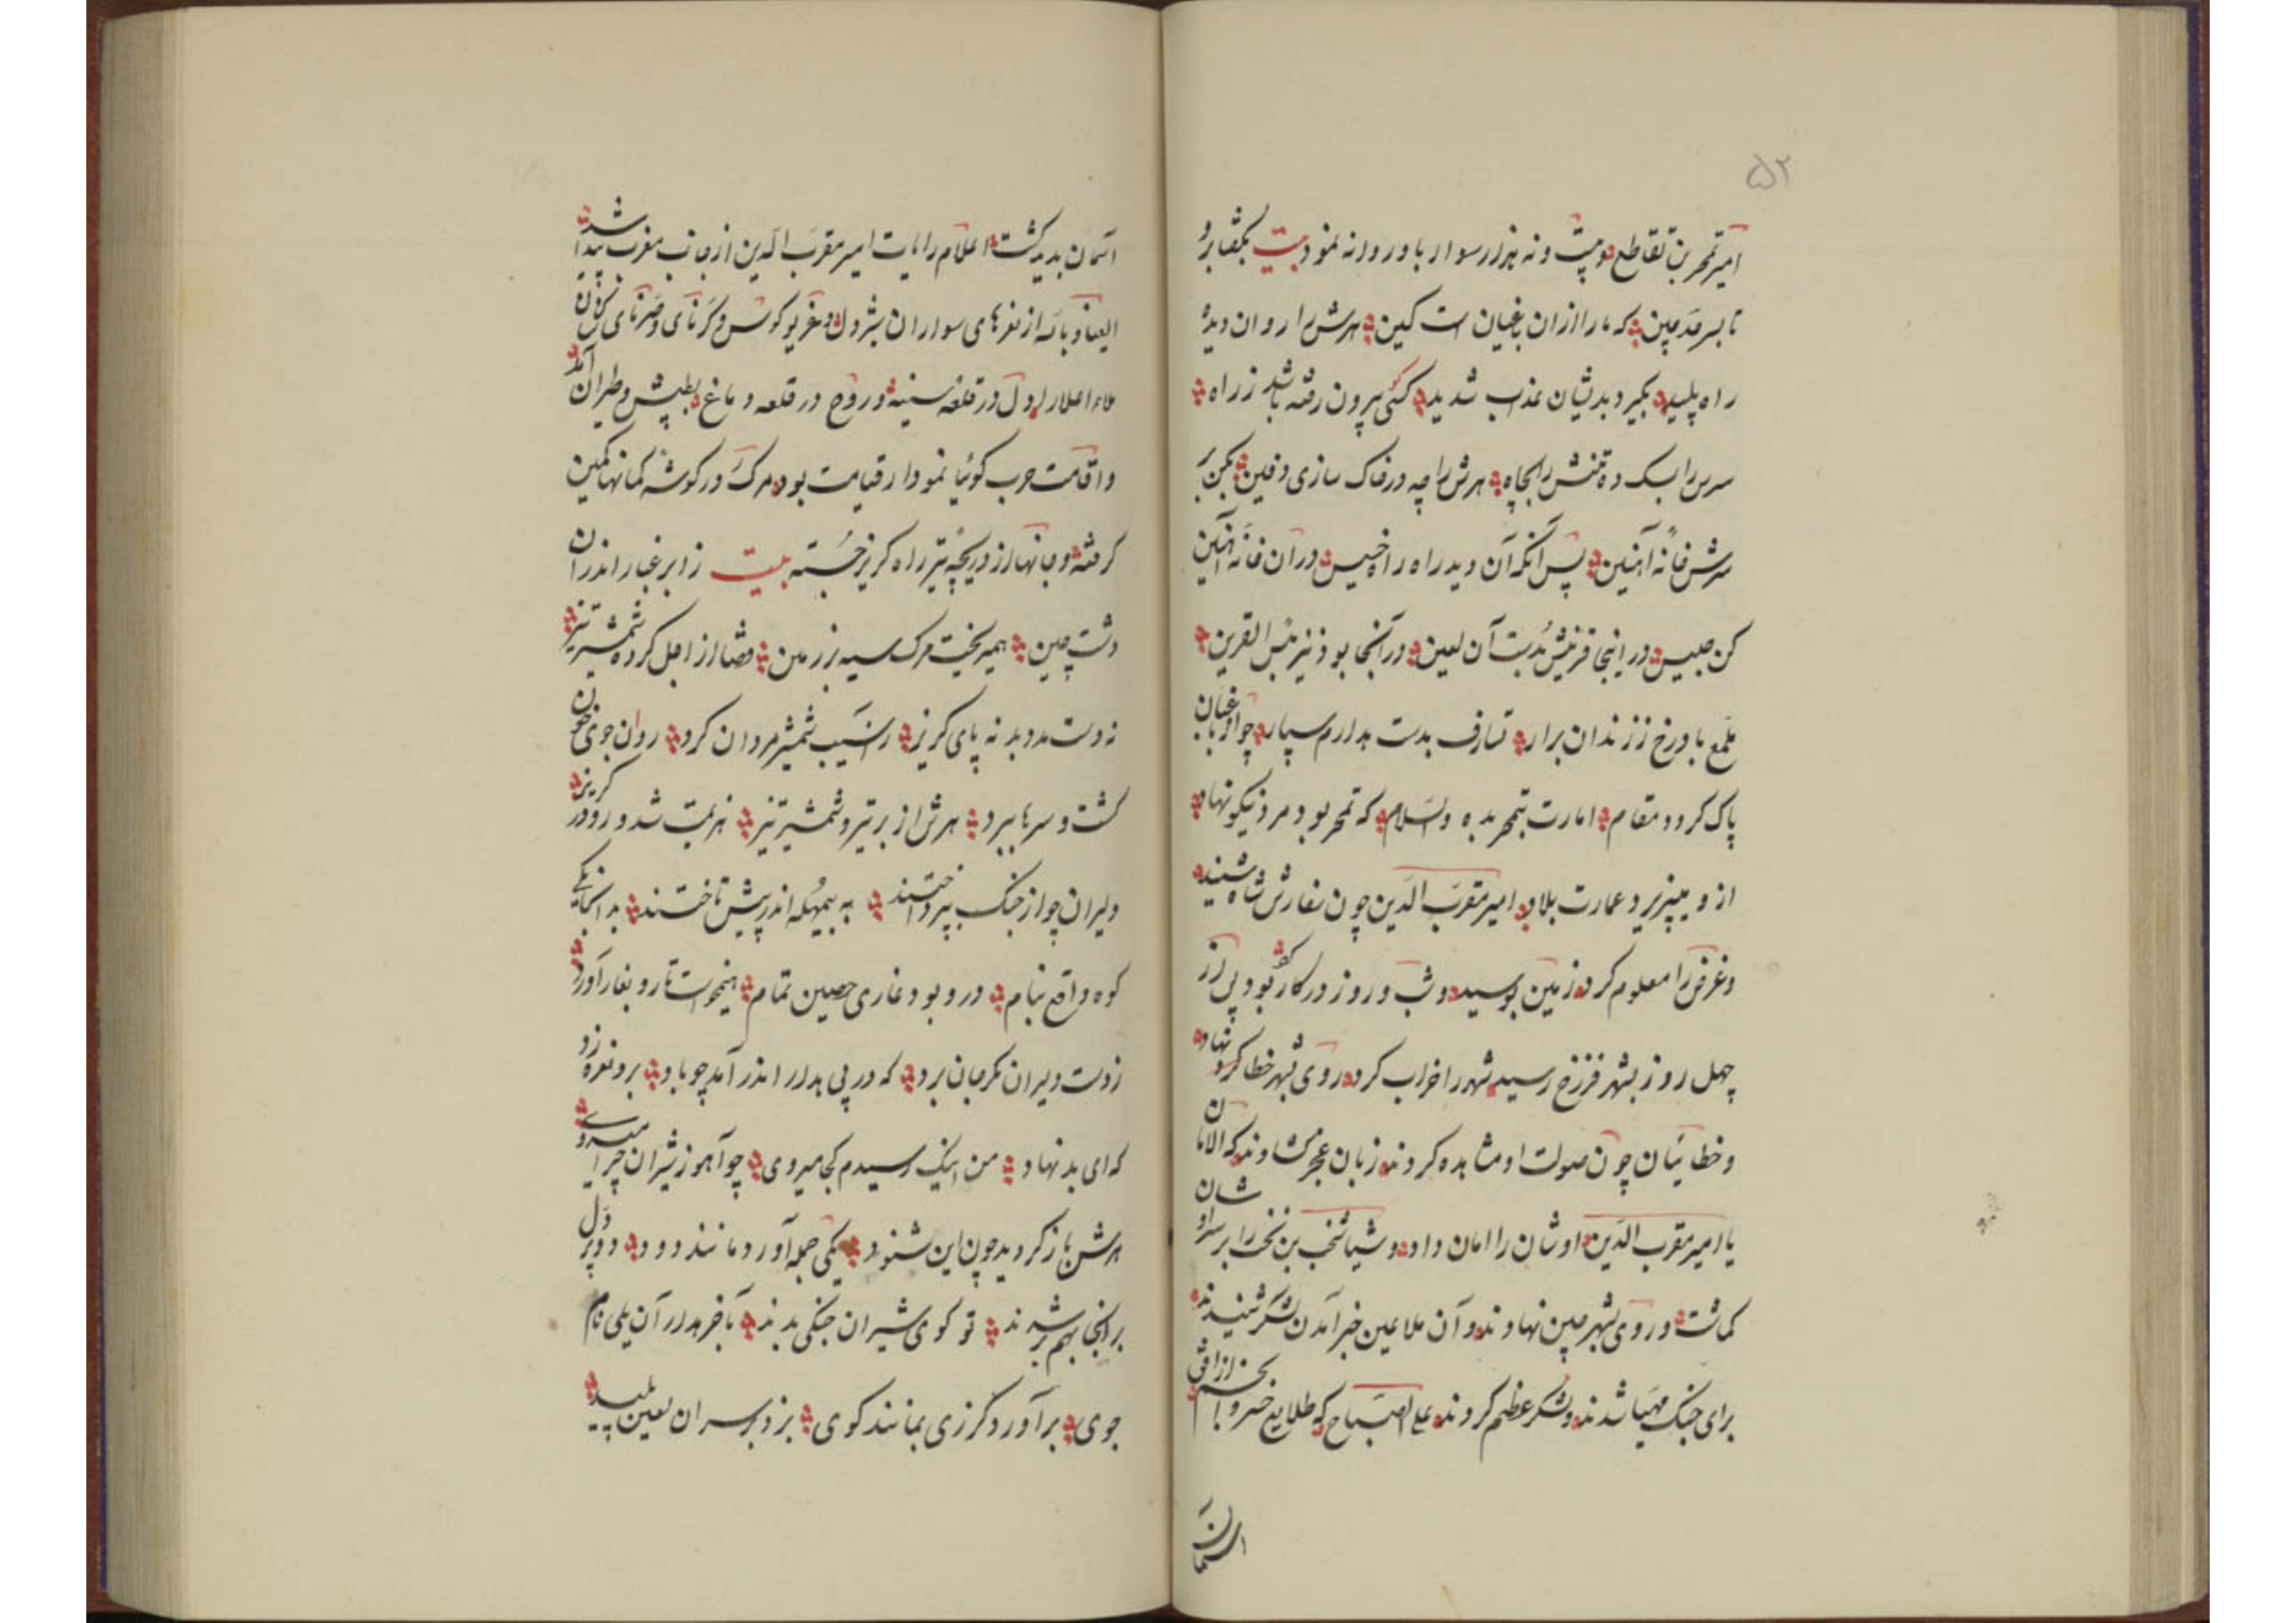 ۵۲
امیر تمحر بن تقاطع دویت و نه هزار سوار با و روانه نمود بیت بگفتا برو
تا بسر حد چین که ما را از ان یاغیان است کین هرش را روان دیده
راه پلید بگیر و بدیشان عذاب شدید کسی بیرون رفته باشد ز راه
سرس را بسک ده تنش را بچاه هرش را چه در خاک سازی دفین بکن بر
سرش خانه آهنین پس آنکه آن دید راه راخسیس در ان خانه آهنین
کن حبیس در اینجا قرینش بدست آن لعین در آنجا بود نیز بئس القرین
بلمع با ورخ ز زندان برار تسارف بدست بدارم سپار چو از باغیان
پاک کردد مقام امارت بتمحر بده والسلام که تمحر بود مرد نیکو نهاد
از و میپزیرد عمارت بلاد امیر مقرب الدین چون سفارش شاه شنید
و غرض را معلوم کرد زمین بوسید و شب و روز در کار بود پس از
چهل روز بشهر فزرخ رسید شهر را خراب کرد و روی شهر خطا کرد نهاد
و خطائیان چون صولت او مشاهده کردند زبان عجز کشادند که الامان
یا امیر مقرب الدین اوشان را امان داد و شیاشخب بن نخب را بر سر اوشان
کماشت و روی بشهر چین نهادند و آن ملاعین خبر آمدن لشکر شنیدند
برای جنک مهیا شدند و لشکر عظیم کردند علی الصباح که طلایع خسرو انجم از افق
اسمان
اسمان بدید کشت اعلام رایات امیر مقرب الدین از جانب مغرب پیدا شد
العیاذ بالله از نعرهای سواران شیردل و غریو کوس و کرنای و صرنای
ملاء اعلا ر دل در قلعه سینه و روح در قلعه دماغ بطپش و طیران آمد
و اقامت حرب کوئیا نمودار قیامت بود مرک در کوشه کمانها کمین
کرفته و جانها از دریچه تیر راه کریز جسته بیت ز ابر غبار اندران
دشت چین همیریخت مرک سیه بر زمین قضا از اجل کرده شمشیر تیز
نه دست مدد بد نه پای کریز ز اسیب شمشیر مردان کرد روان جوی خون
کشت و سرها ببرد هرش از بر تیر و شمشیر تیز هزیمت شد و رو در کریز
دلیران چو از جنک بپرداختند به بیمهله اندر پیش تاختند بد انجا یکی
کوه واقع بنام در و بود غاری حصین تمام همیخواست تا رو بغار آورد
ز دست دلیران مکر جان برد که در پی بدار اندر آمد چو باد برو نعره زد
که ای بد نهاد من اینک رسیدم کجا میروی چو آهو ز شیران چرا میروی
هرش باز کردید چون این شنود یکی حمله آورد مانند دود دو پر دل
بر انجا بهم بر شدند تو کوی شیران جنکی بدند بآخر بدار آن یلی نام
جوی برآورد کرزی بمانند کوی بزد بر سر ان لعین پلید